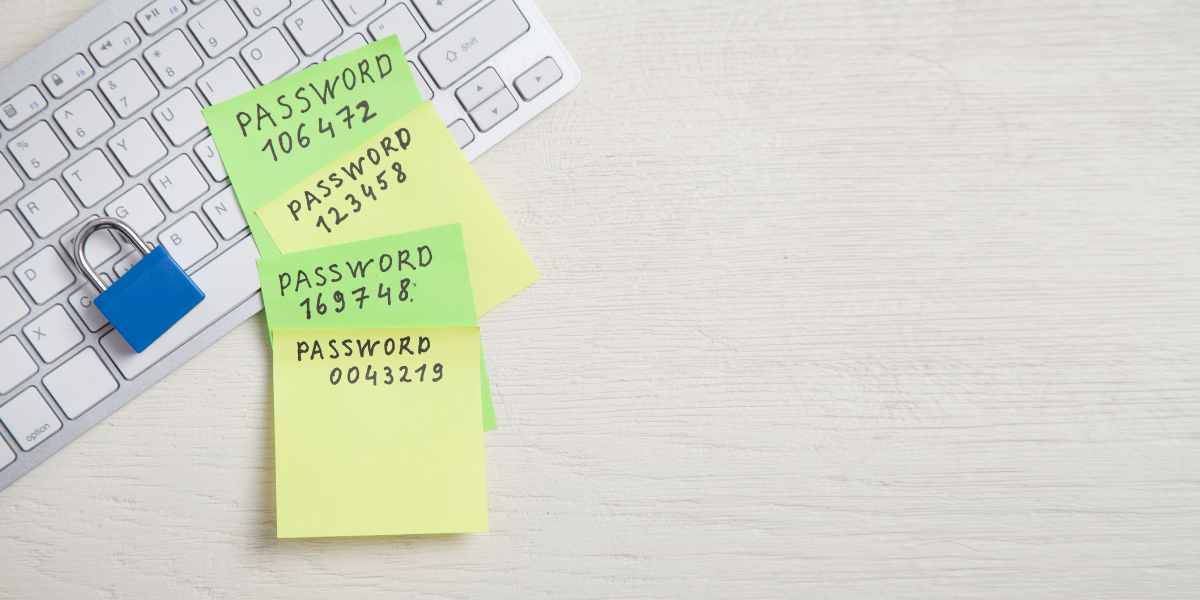 F5 F6 F7 F8
% 5 ^ 6 & 7 * 8 ( 9 0
R T Y U I O P
D G H J
X C B N Shift
option
PASSWORD
106472
PASSWORD
123458
PASSWORD
169748.
PASSWORD
0043219